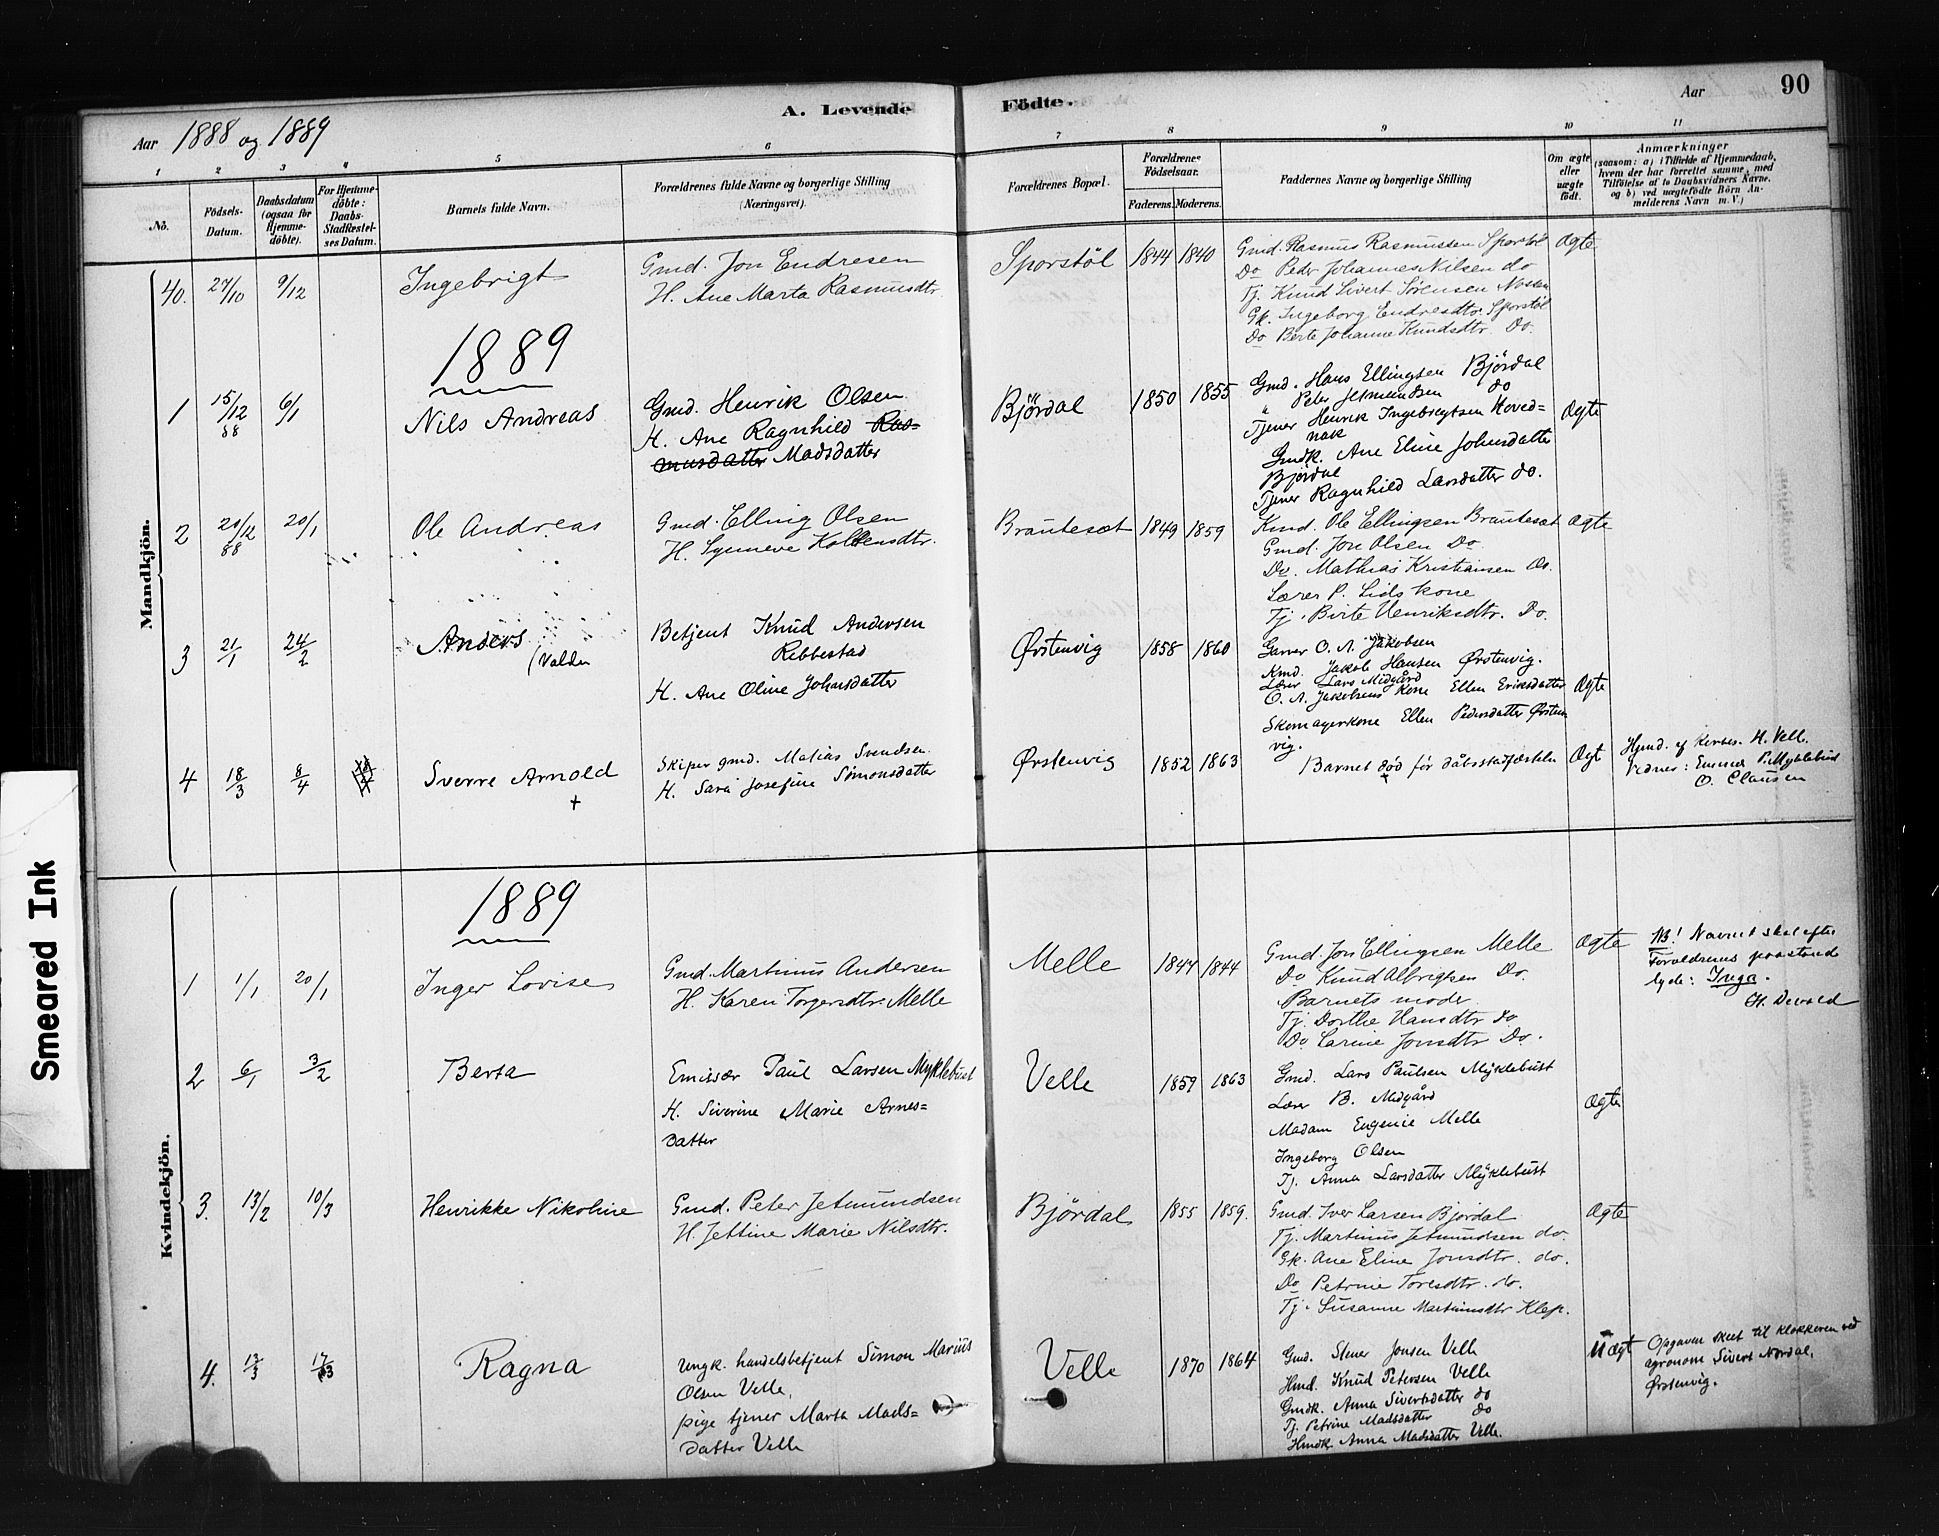 A. Levende Födte.
Aar 1888 og 1889
Aar
90
1 2 3 4 5 6 7 8 9 10 11
No.
Födsels-Datum.
Daabsdatum (ogsaa for Hjemme-döbte).
For Hjemme-döbte: Daabs-Stadfæstel-ses Datum.
Barnets fulde Navn.
Forældrenes fulde Navne og borgerlige Stilling (Næringsvei).
Forældrenes Bopæl.
Forældrenes Födselsaar.
Faderens. Moderens.
Faddernes Navne og borgerlige Stilling
Om ægte eller uægte födt.
Anmærkninger
(saasom: a) i Tilfælde af Hjemmedaab, hvem der har forrettet samme, med Tilföielse af to Daabsvidners Navne, og b) ved uægtefödte Börn Anmelderens Navn m. V.)
Mandkjön.
40. 27/10 9/12 Ingebrigt
Gmd. Jon Endresen
H. Ane Marta Rasmusdtr.
Sporstöl 1844 1840
Gmd. Rasmus Rasmussen Sporstöl
Do Peder Johannes Nilsen do
Tj. Knud Sivert Sörensen
Gk. Ingeborg Endresdtr. Sporstöl
Do Berte Johanne Knudsdtr. Do.
Ægte
1889
1 15/12 88 6/1 Nils Andreas
Gmd. Henrik Olsen
H. Ane Ragnhild Ras=
musdatter Madsdatter
Björdal 1850 1855
Gmd. Hans Ellingsen Björdal
" Peter Jetmundsen do
Tjener Henrik Ingebregtsen Hoved=
nak
Gmdk. Ane Eline Johnsdatter
Björdal
Tjener Ragnhild Larsdatter do.
Ægte
2 20/12 88 20/1 Ole Andreas
Gmd. Elling Olsen
H. Synneve Kolbensdtr.
Brautesæt 1849 1859
Kmd. Ole Ellingsen Brautesæt
Gmd. Jon Olsen Do
Do. Mathias Kristiansen Do.
Lærer P. Lids kone
Tj. Birte Henriksdtr. Do.
Ægte
3 21/1 24/2 Anders
(Valder
Betjent Knud Andersen
Ribbestad
H. Ane Oline Johnsdatter
Ørstenvig 1858 1860
Garver O. A. Jakobsen
Kmd. Jakob Hansen Ørstenvig.
Lærer Lars Midgård
O. A. Jakobsens kone Ellen Eriksdatter
Skomagerkone Ellen Pedersdatter Ørsten
vig.
Ægte
4 18/3 8/4 Sverre Arnold
+
Skiper gmd. Matias Svendsen
H. Sara Josefine Simonsdatter
Ørstenvig 1852 1863
Barnet död för dåbsstadfæstelsen
+
Ægt
Hjmd. af Kirkes. H. Velle.
Vidner: Emma P. Myklebust
O. Clausen
Kvindekjön.
1889
1 1/1 20/1 Inger Lovise
Gmd. Martinus Andersen
H. Karen Torgersdtr. Melle
Melle 1844 1844
Gmd. Jon Ellingsen Melle
Do Knud Albrigtsen Do.
Barnets moder
Tj. Dorthe Hansdtr do
Do Larine Jonsdtr Do.
Ægte
NB! Navnet skal efter
Forældrenes paastand
lyde: Inga.
H. Devold
2 6/1 3/2 Berta
Emissær Paul Larsen Myklebust
H. Siverine Marie Arnes=
datter
Velle 1859 1863
Gmd. Lars Paulsen Myklebust
Lærer B. Midgård
Madam Eugenie Melle
Ingeborg Olsen
Tj. Anna Larsdatter Myklebust
Ægte
3. 13/2 10/3 Henrikke Nikoline
Gmd. Peter Jetmundsen
H. Jettine Marie Nilsdtr.
Björdal 1855 1859.
Gmd. Iver Larsen Bjordal
Tj. Martinus Jetmundsen do.
Gk. Ane Eline Jonsdtr. do.
Do Petrine Toresdtr. do.
Tj. Susanne Martinusdtr Klep.
Ægte
4. 13/3 17/3 Ragna
Ungk. handelsbetjent Simon Marius
Olsen Velle,
pige tjener Marta Mads=
datter Velle
Velle 1870 1864
Gmd. Stener Jonsen Velle
Hmd. Knud Petersen Velle
Gmdk. Anna Sivertsdatter do
Tj. Petrine Madsdatter do
Hmdk Anna Madsdatter Velle.
Uægt
Opgaven skeet til klokkeren ved
agronom Sivert Nordal,
Ørstenvig.
Smeared Ink